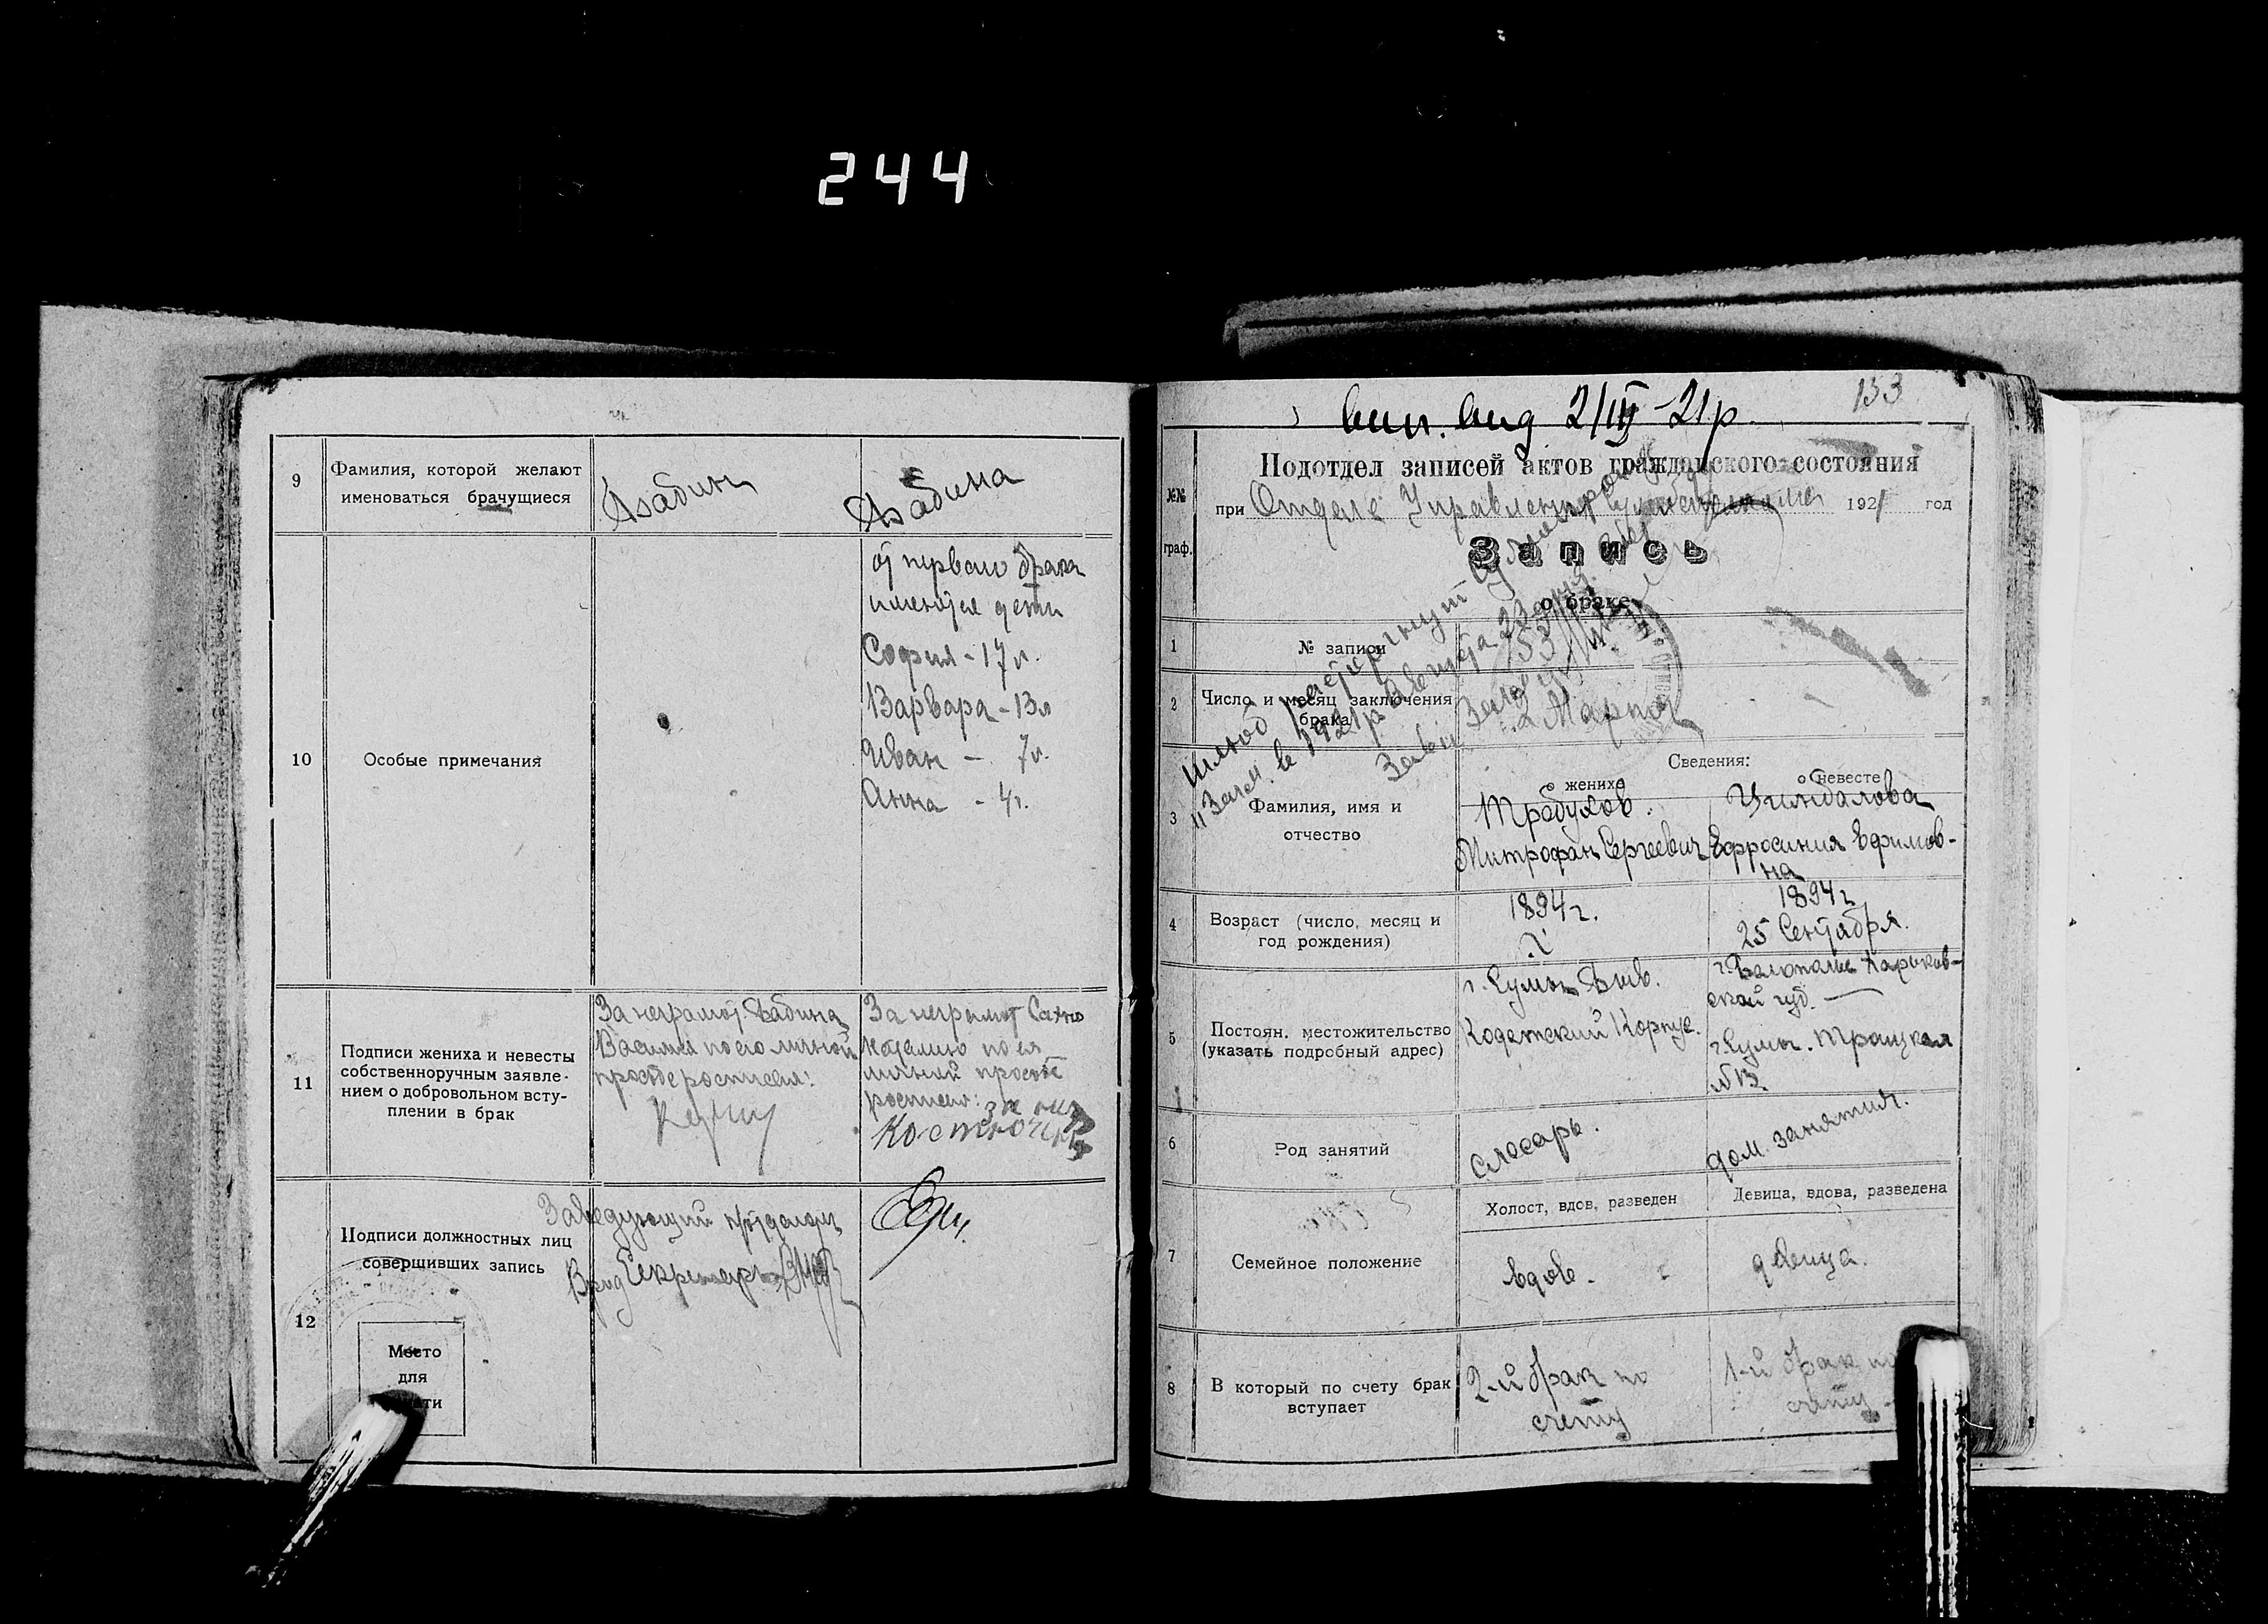 244
9
Фамилия, которой желают
именоваться брачущиеся
Бабин
Бабина
10
Особые примечания
от первого брака
имеются дети
София - 17 л.
Варвара - 13 л
Иван - 7 л.
Анна - 4 г.
11
Подписи жениха и невесты
собственноручным заявле-
нием о добровольном всту-
плении в брак
За неграмот. Бабина
Василия по его личной
просьбе росписался:
За неграмот
по ея
личной просьбе
12
Подписи должностных лиц
совершивших запись
Заведующий п/отделом
Врид Секретаря
Место
для
печати
153
вип. вид 2/III-21р.
№№
граф.
Подотдел записей актов гражданского состояния
при Отделе Управления 1921 год
Запись
о браке
Шлюб
в 1921р
1
№ записи
153
2
Число и месяц заключения
брака
2 Марта
Сведения:
о женихе
о невесте
3
Фамилия, имя и
отчество
Митрофан Сергеевич
Ефросиния Ефимов-
на
4
Возраст (число, месяц и
год рождения)
1894 г.
1894 г.
25 Сентября.
5
Постоян. местожительство
(указать подробный адрес)
г. Сумы Быв.
Кадетский Корпус.
г. Белополье Харьков-
ской губ.
г. Сумы. Троицкая
6
Род занятий
слесарь.
дом. занятия.
7
Семейное положение
Холост, вдов, разведен
Девица, вдова, разведена
вдов.
девица.
8
В который по счету брак
вступает
2-й брак по
счету
1-й брак по
счету